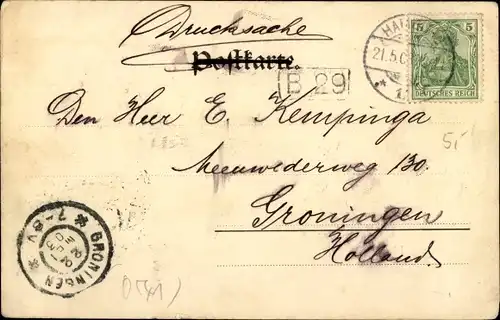 Drucksache
Postkarte.
5 5
DEUTSCHES REICH
HA
21.5.0
B 29
Den Heer E. Kempinga
Meeuwederweg 130.
5,-
Groningen
Holland.
GRONINGEN
7-8V